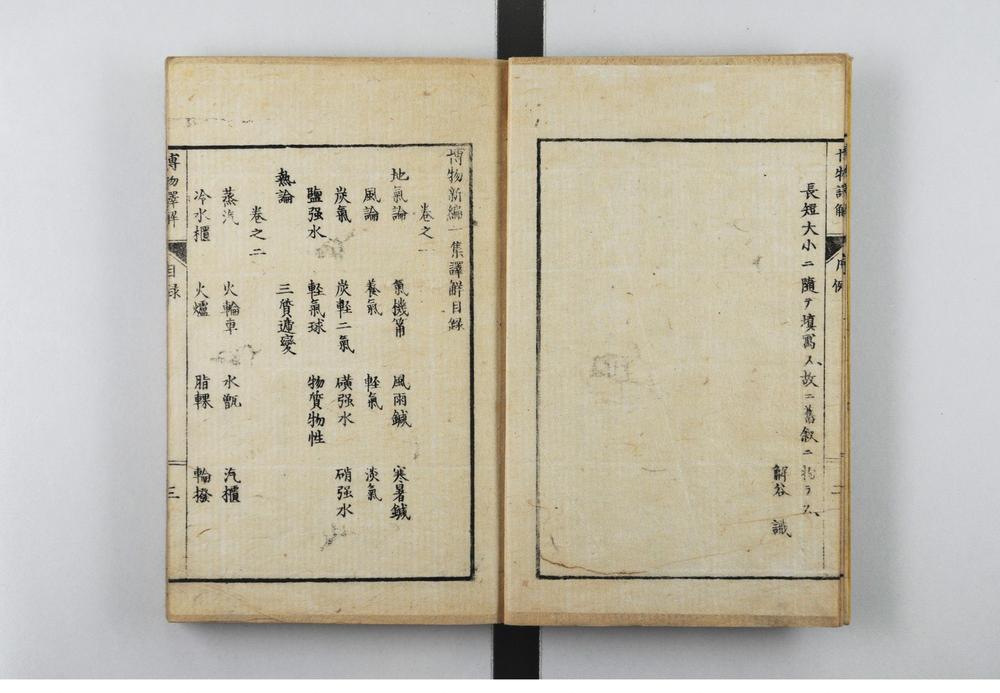 長短大小ニ隨テ填寫ス、故ニ舊叙ニ拘ラス、
解谷 識
博物新編一集譯解目録
卷之一
地氣論 氣機筩 風雨鍼 寒暑鍼
風論 養氣 軽氣 淡氣
炭氣 炭軽二氣 磺强水 硝强水
鹽强水 軽氣球 物質物性
熱論 三質遞變
卷之二
蒸汽 火輪車 水甑 汽櫃
冷水櫃 火爐 脂粿 輪撥
博物譯解 目録 三